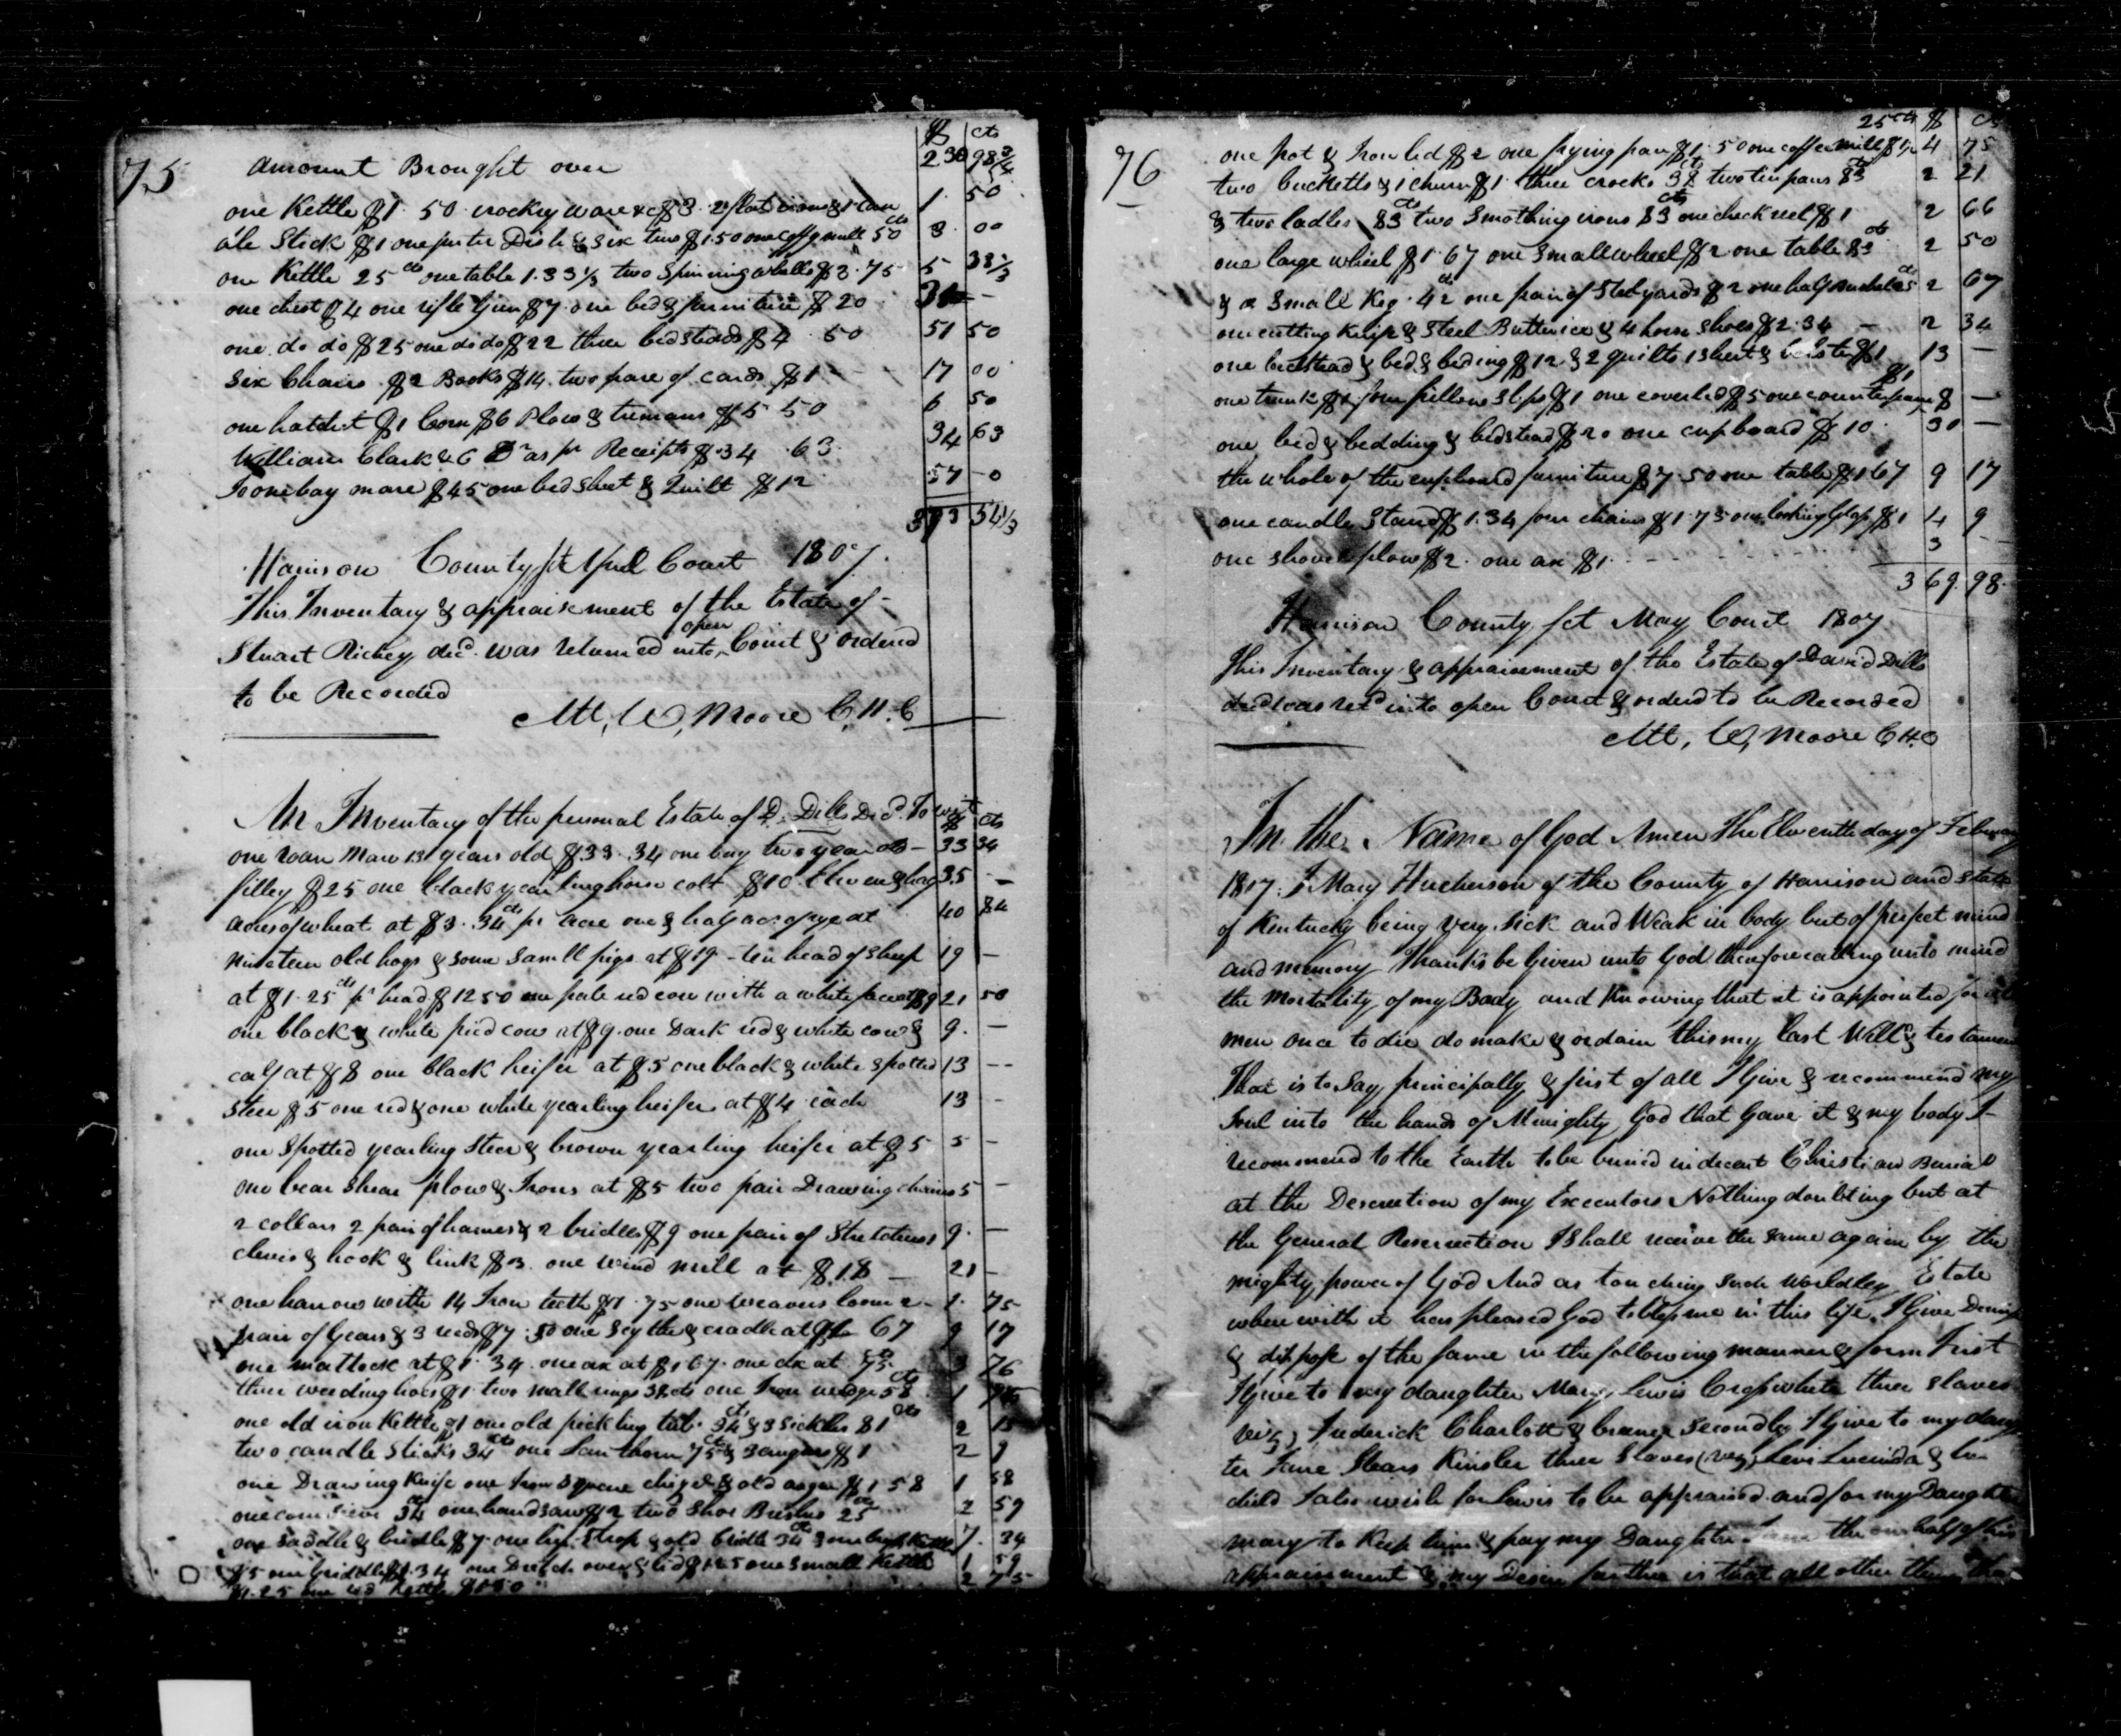 75
$ cts
Amount Brought over 230 98 3/4
one Kettle $1.50 crockry ware &c $3. 2 flat irons & 1 1. 50
Stick $1 one puter Dish & six $1.50 one mill 50 cts 3. 00
one Kettle 25 cts one table 1.33 1/3 two Spinning wheels $3.75 5 33 1/3
one chest $4 one rifle Gun $7. one bed & furniture $20 31 -
one do do $25 one do do $22 three bedsteads $4.50 51 50
Six Chairs $2 Books $14. two pare of cards $1 17 00
one hatchet $1 Corn $6 Plow & $5 50 6 50
William Clark & C Dr as pr Receipts $34.63 34 63
To one bay mare $45 one bed Sheet & Quilt $12 57 - 0
393 54 1/3
Harrison County Sct April Court 1807.
This Inventary & appraisement of the Estate of
Stuart Richey decd. was returned into open Court & ordered
to be Recorded
Att, W, Moore C.H.C
An Inventary of the personal Estate of D. Dills Decd. To wit $ cts
one roan Mare 13 years old $33.34 one bay two year old - 33 34
filley $25 one black yearling horse colt $10 twelve & half 35 -
acres of wheat at $3.34 cts pr acre one & half acre of rye at 40 84
nineteen old hogs & some samll pigs at $19 - ten head of sheep 19 -
at $1.25 cts pr head $12 50 one pale red cow with a white face at $9 21 50
one black & white pied cow at $9. one Dark red & white cow & 9. -
calf at $8 one black heifer at $5 one black & white spotted 13 --
Steer $5 one red & one white yearling heifer at $4 each 13 -
one Spotted yearling Steer & brown yearling heifer at $5 5 -
one bear Shear plow & Irons at $5 two pair Drawing chains 5 -
2 collars 2 pair of hames & 2 bridles $9 one pair of Stretchers 9. -
clevis & hook & link $3. one wind mill at $18 - 21 -
one harrow with 14 Iron teeth $1.75 one weavers loom 2 - 1. 75
pair of Gears & 3 reeds $7.50 one Scythe & cradle at $1 67 9 17
one mattock at $1.34 one ax at $1 67. one ax at 75 cts 3 76
three weeding hoes $1 two mall rings 38 cts one Iron wedge 58 cts 1
one old iron Kettle $1 one old pickling tub 34 cts & 3 Sickles 81 cts 2 15
two candle Sticks 34 cts one Lanthorn 75 cts & 3 augers $1 2 9
one Drawing Knife one Iron Square chizel & old auger $1 58 1 58
one corn sieve 34 cts one hand saw $2 two Shoe Brushes 25 cts 2 59
one Saddle & bridle $7 one Strap & old bridle 34 cts 7. 34
$5 one griddle $1.34 one Dutch oven & lid $1.25 one Small Kettle 1 59
$1.25 one Kettle $1.50 2 75
76
25 cts $ cts
one pot & Iron lid $2 one frying pan $1.50 one coffee mill $1 4 75
two bucketts & 1 churn $1 three crocks 38 cts two tin pans 83 cts 2 21
& two ladles 83 cts two Smothing irons 83 cts one check reel $1 2 66
one large wheel $1.67 one Small wheel $2 one table 83 cts 2 50
& a Small Keg. 42 cts one pair of Steelyards $2 one half bushel 25 cts 2 67
one cutting Knife & Steel Butterice & 4 horse Shoes $2.34 - 2 34
one bedstead & bed & beding $12 & 2 quilts 1 Sheet & bolster $1 13 -
one trunk $1 four pillow Slips $1 one coverled $5 one counterpane $1 8 -
one bed & bedding & bedstead $20 one cupboard $10. 30 -
the whole of the cupboard furniture $7.50 one table $1 67 9 17
one candle Stand $1.34 four chairs $1.75 one looking Glass $1 4 9
one shovel plow $2. one ax $1. 3 --
369. 98.
Harrison County Sct May Court 1807
This Inventary & appraisement of the Estate of David Dills
decd was retd into open Court & ordered to be Recorded
Att, W, Moore C.H.C
In the Name of God Amen The Eleventh day of Februay
1807. I Mary Hucherson of the County of Harrison and State
of Kentucky being very Sick and Weak in body but of perfect mind
and memory Thanks be Given unto God therefore calling unto mind
the Mortality of my Body and Knowing that it is appointed for all
men once to die do make & ordain this my last Will & testament
That is to Say, principally & first of all I Give & recommend my
Soul into the hands of Almighty God that Gave it & my body I
recommend to the Earth to be buried in decent Christian Burial
at the Descretion of my Executors Nothing doubting but at
the General Reserrection I Shall receive the Same again by the
mighty power of God And as touching Such Worldley Estate
where with it has pleased God to bless me in this life. I Give Demise
& dispose of the Same in the following manner & form First
I give to my daughter Mary Lewis Crosswhite three slaves
viz, Frederick Charlott & Secondly I Give to my daugh
ter Jane Stears Kinsler three Slaves (viz) Levi Lucinda & her
child I also wish for Lewis to be appraised and for my Daughter
mary to Keep him & pay my Daughter Jane the one half of his
appraisment & my Desire further is that all other